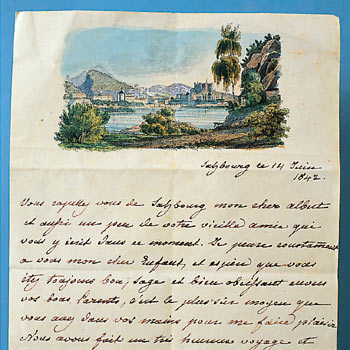 Salzbourg ce 14 Juin
1842.
Vous rapellez vous de Salzbourg mon cher Albert
et aussi un peu de votre vieille amie qui
vous y écrit dans ce moment. Je pense constamment
a vous mon cher Enfant, et espère que vous
êtes toujours bon, sage et bien obeissant envers
vos bons Parents, c'est le plus sûr moyen que
vous ayez dans vos mains pour me faire plaisir.
Nous avons fait un très heureux voyage et